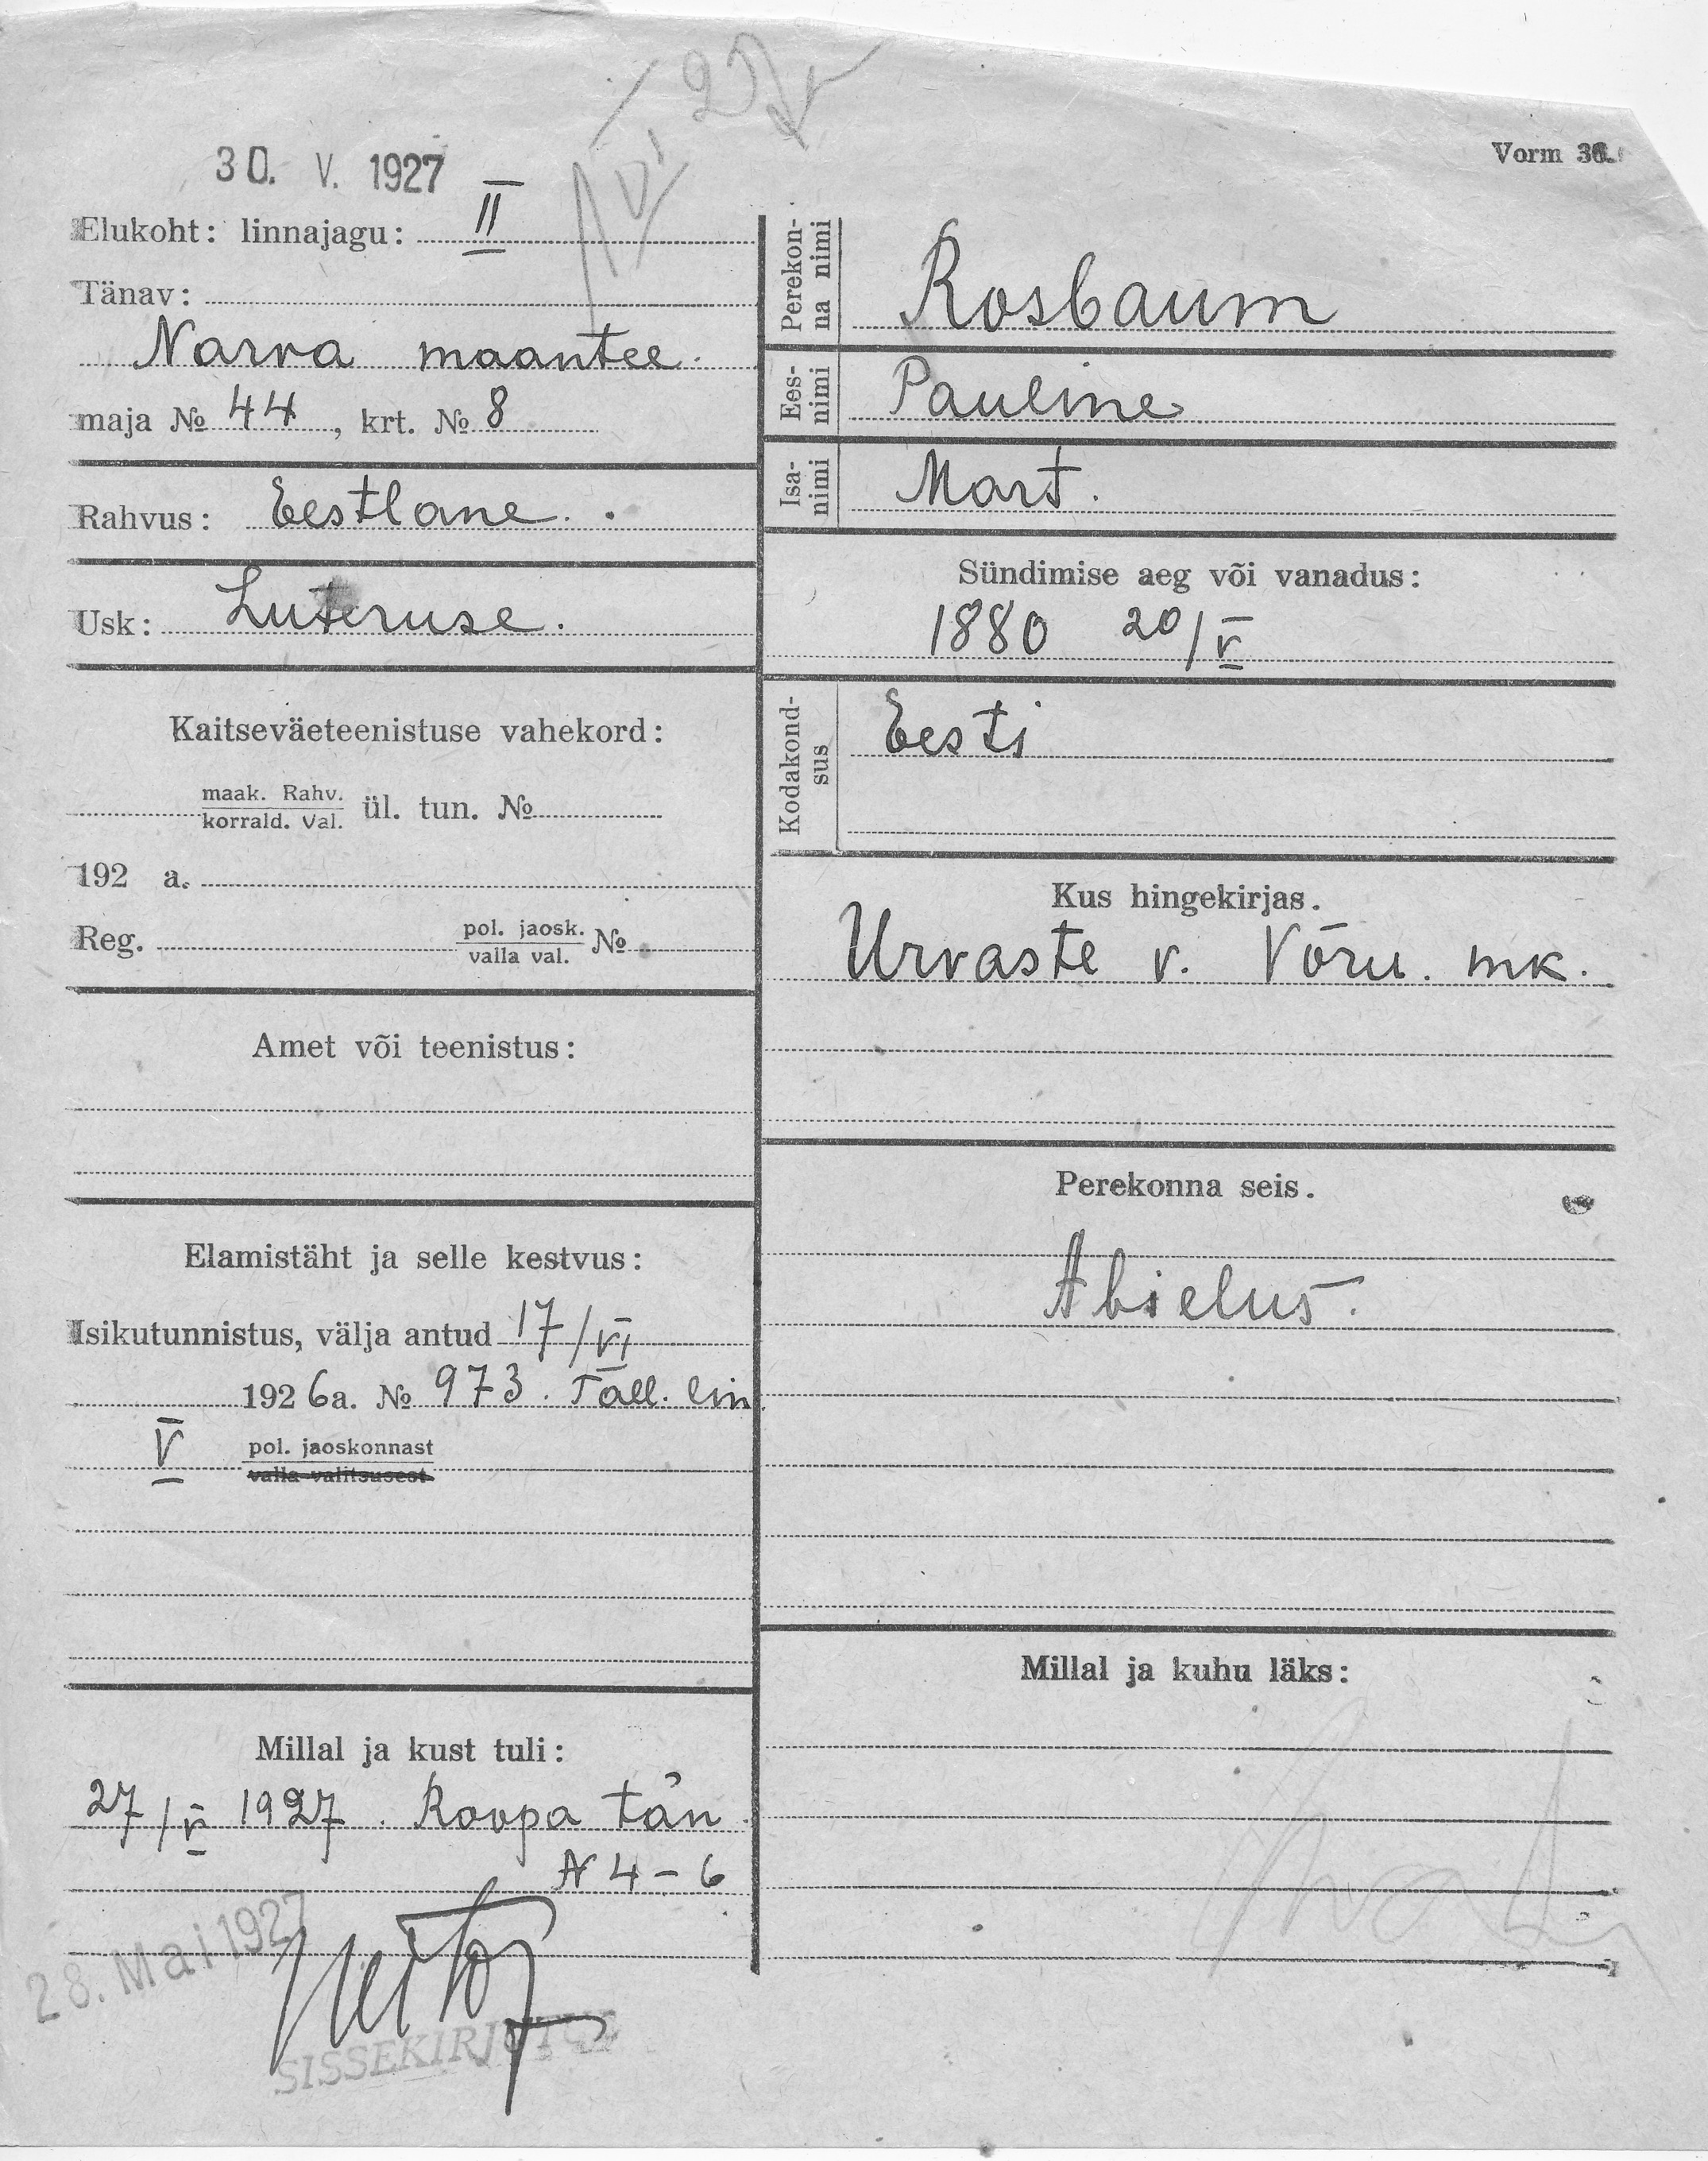 30. V. 1927
Vorm 36.
Elukoht: linnajagu: II
Tänav:
Narva maantee.
maja № 44, krt. № 8
Rahvus: Eestlane.
Usk: Luteruse.
Kaitseväeteenistuse vahekord:
maak. Rahv.
korrald. Val. ül. tun. №
192 a.
Reg. pol. jaosk.
valla val. №
Amet või teenistus:
Elamistäht ja selle kestvus:
Isikutunnistus, välja antud 17/VI
1926a. № 973. Tall. lin
V pol. jaoskonnast
valla valitsusest
Millal ja kust tuli:
27/V 1927. Koopa tän
N 4-6
28. Mai 1927
SISSEKIRJUTUS
Perekon-
na nimi Rosbaum
Ees-
nimi Pauline
Isa-
nimi Mart.
Sündimise aeg või vanadus:
1880 20/V
Kodakond-
sus Eesti
Kus hingekirjas.
Urvaste v. Võru. mk.
Perekonna seis.
Abielus.
Millal ja kuhu läks: